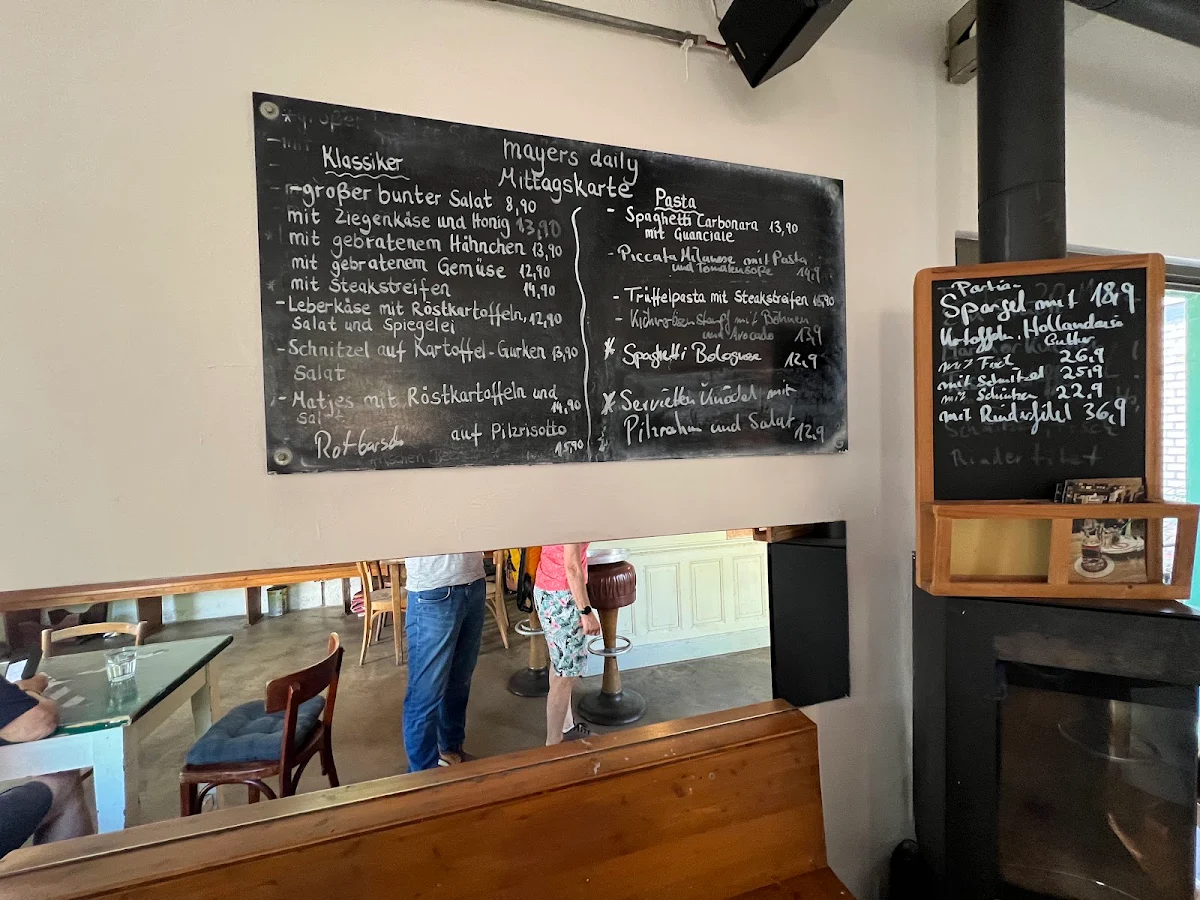 mayers daily
Mittagskarte
Klassiker
- großer bunter Salat 8,90
mit Ziegenkäse und Honig 13,90
mit gebratenem Hähnchen 13,90
mit gebratenem Gemüse 12,90
mit Steakstreifen 14,90
- Leberkäse mit Röstkartoffeln, 12,90
Salat und Spiegelei
- Schnitzel auf Kartoffel-Gurken 13,90
Salat
- Matjes mit Röstkartoffeln und
Salat 14,90
Rotbarsch auf Pilzrisotto
15,90
Pasta
- Spaghetti Carbonara 13,90
mit Guanciale
- Piccata Milanese mit Pasta
und Tomatensoße 14,9
- Trüffelpasta mit Steakstreifen 15,90
- Kichererbseneintopf mit Bohnen
und Avocado 13,9
* Spaghetti Bolognese 12,9
* Servietten Knödel mit
Pilzrahm und Salat 12,9
Spargel mit 18,9
Kartoffeln, Hollandaise
Butter
26,9
mit Schnitzel 25,9
mit Schinken 22,9
mit Rinderfilet 36,9
Rinderfilet